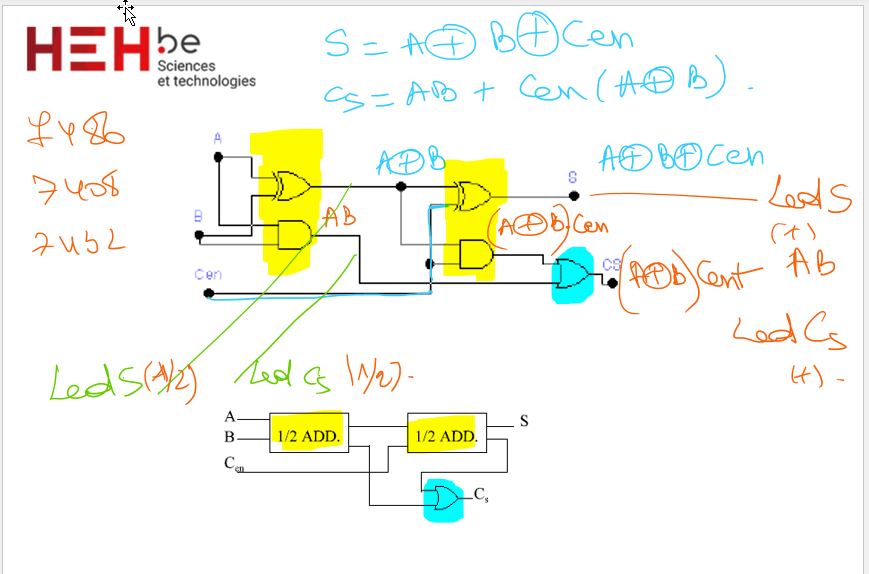 HEH.be
Sciences
et technologies
S = A⊕B⊕Cen
Cs = AB + Cen(A⊕B).
7486
7408
7432
A
A⊕B
A⊕B⊕Cen
S
Led S
(+)
B
AB
(A⊕B).Cen
Cen
CS
(A⊕B)Cen+ AB
Led Cs
(+)
Led S (1/2)
Led Cs (1/2).
A
B
1/2 ADD.
1/2 ADD.
S
Cen
Cs